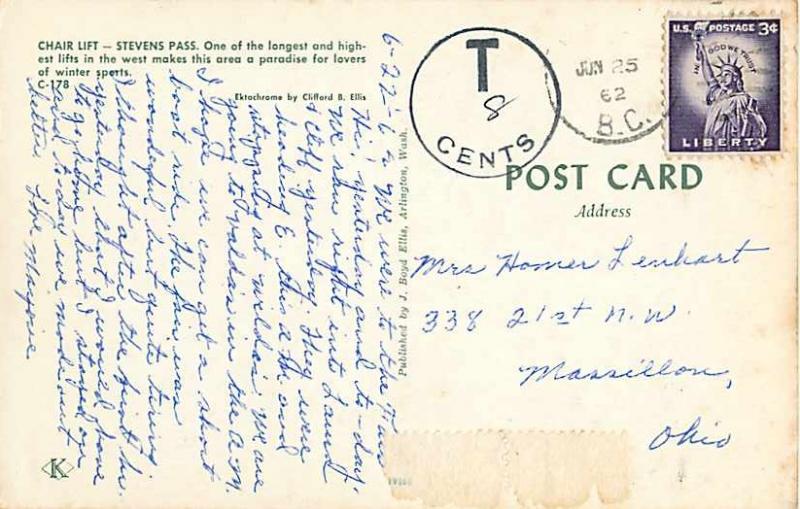 CHAIR LIFT — STEVENS PASS. One of the longest and high-
est lifts in the west makes this area a paradise for lovers
of winter sports.
C-178
Ektochrome by Clifford B. Ellis
6-22-62 We were to the Fair
Thu, yesterday and to-day.
We ran right into Laura
& Cliff yesterday. They were
heading E. this a.m. and
stopped at We are
going to in the a.m.
I hope we can get a short
boat ride. The fair was
wonderful but quite tiring.
I thought after the first hr.
yesterday that I would have
to go home but I stayed on
and to-day we made out
better. Love Marjorie
K
Published by J. Boyd Ellis, Arlington, Wash.
T
8
CENTS
JUN 25
62
B.C.
U.S. POSTAGE 3¢
IN GOD WE TRUST
LIBERTY
POST CARD
Address
Mrs Homer Lenhart
338 21st N.W.
Massillon,
Ohio